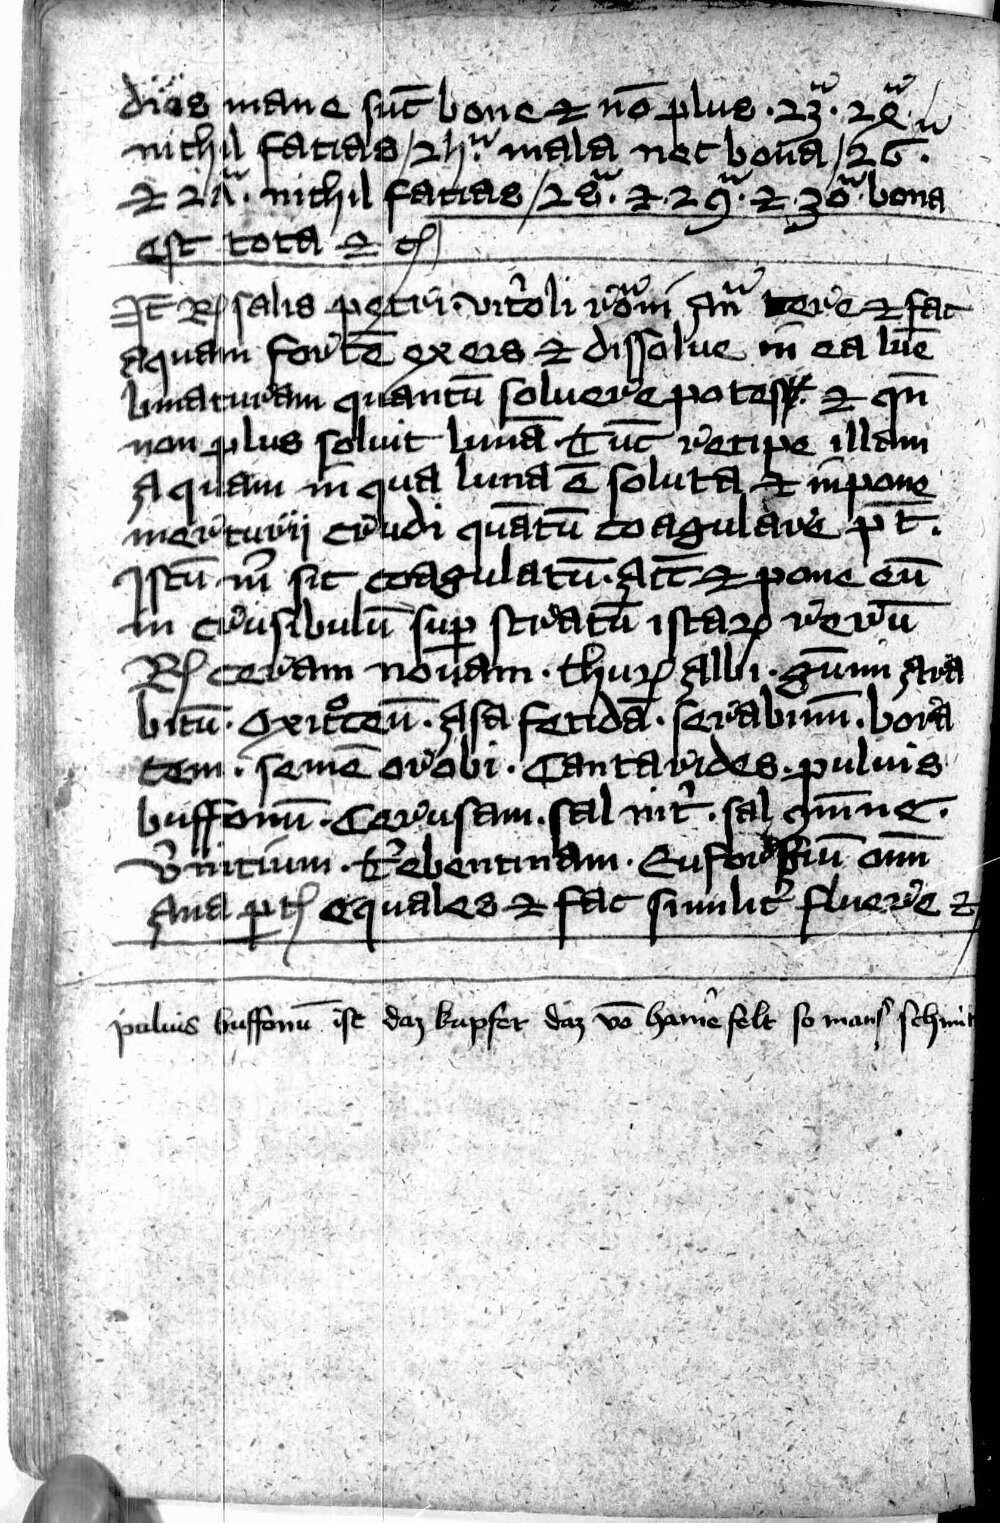 dies mane sūt bone et nō plus · 23ᵃ · 24ᵃ
nichil facias / 25ᵃ mala nec bona / 26ᵃ ·
et 27ᵃ · nichil facias / 28ᵃ · et · 29ᵃ · et · 30ᵃ · bona
est tota et cꝭ
It Rꝭ salis petri · vit'oli romī añ tere et fac
aquam fortē ex eis et dissolue in ea lūe
limaturam quantū soluere potest · et qn̄
non plus soluit lunā · Tūc recipe illam
aquam in̄ qua luna ē soluta et īnpone
mercurij crudi quātū coagulare pt̄ ·
Istū m̄ sic coagulatū · acc̄ et pone eū
in crusibulū sup stratū istaꝝ rerū
Rꝭ ceram nouam · thuꝝ albi · gūmi ara
bicū · oxicͦceū · Asa fetidā · serabinū · bora
cem · semē orobi · Cantarides · puluis
buffonū · Cerusam · sal nit' · sal gēme ·
v'nicium · t'ebentinam · Euforbiū om̄
Ana ptꝭ equales et fac similit' fluere et
puluis buffonū ist daz kupfer daz vō hamē felt so mans schmit